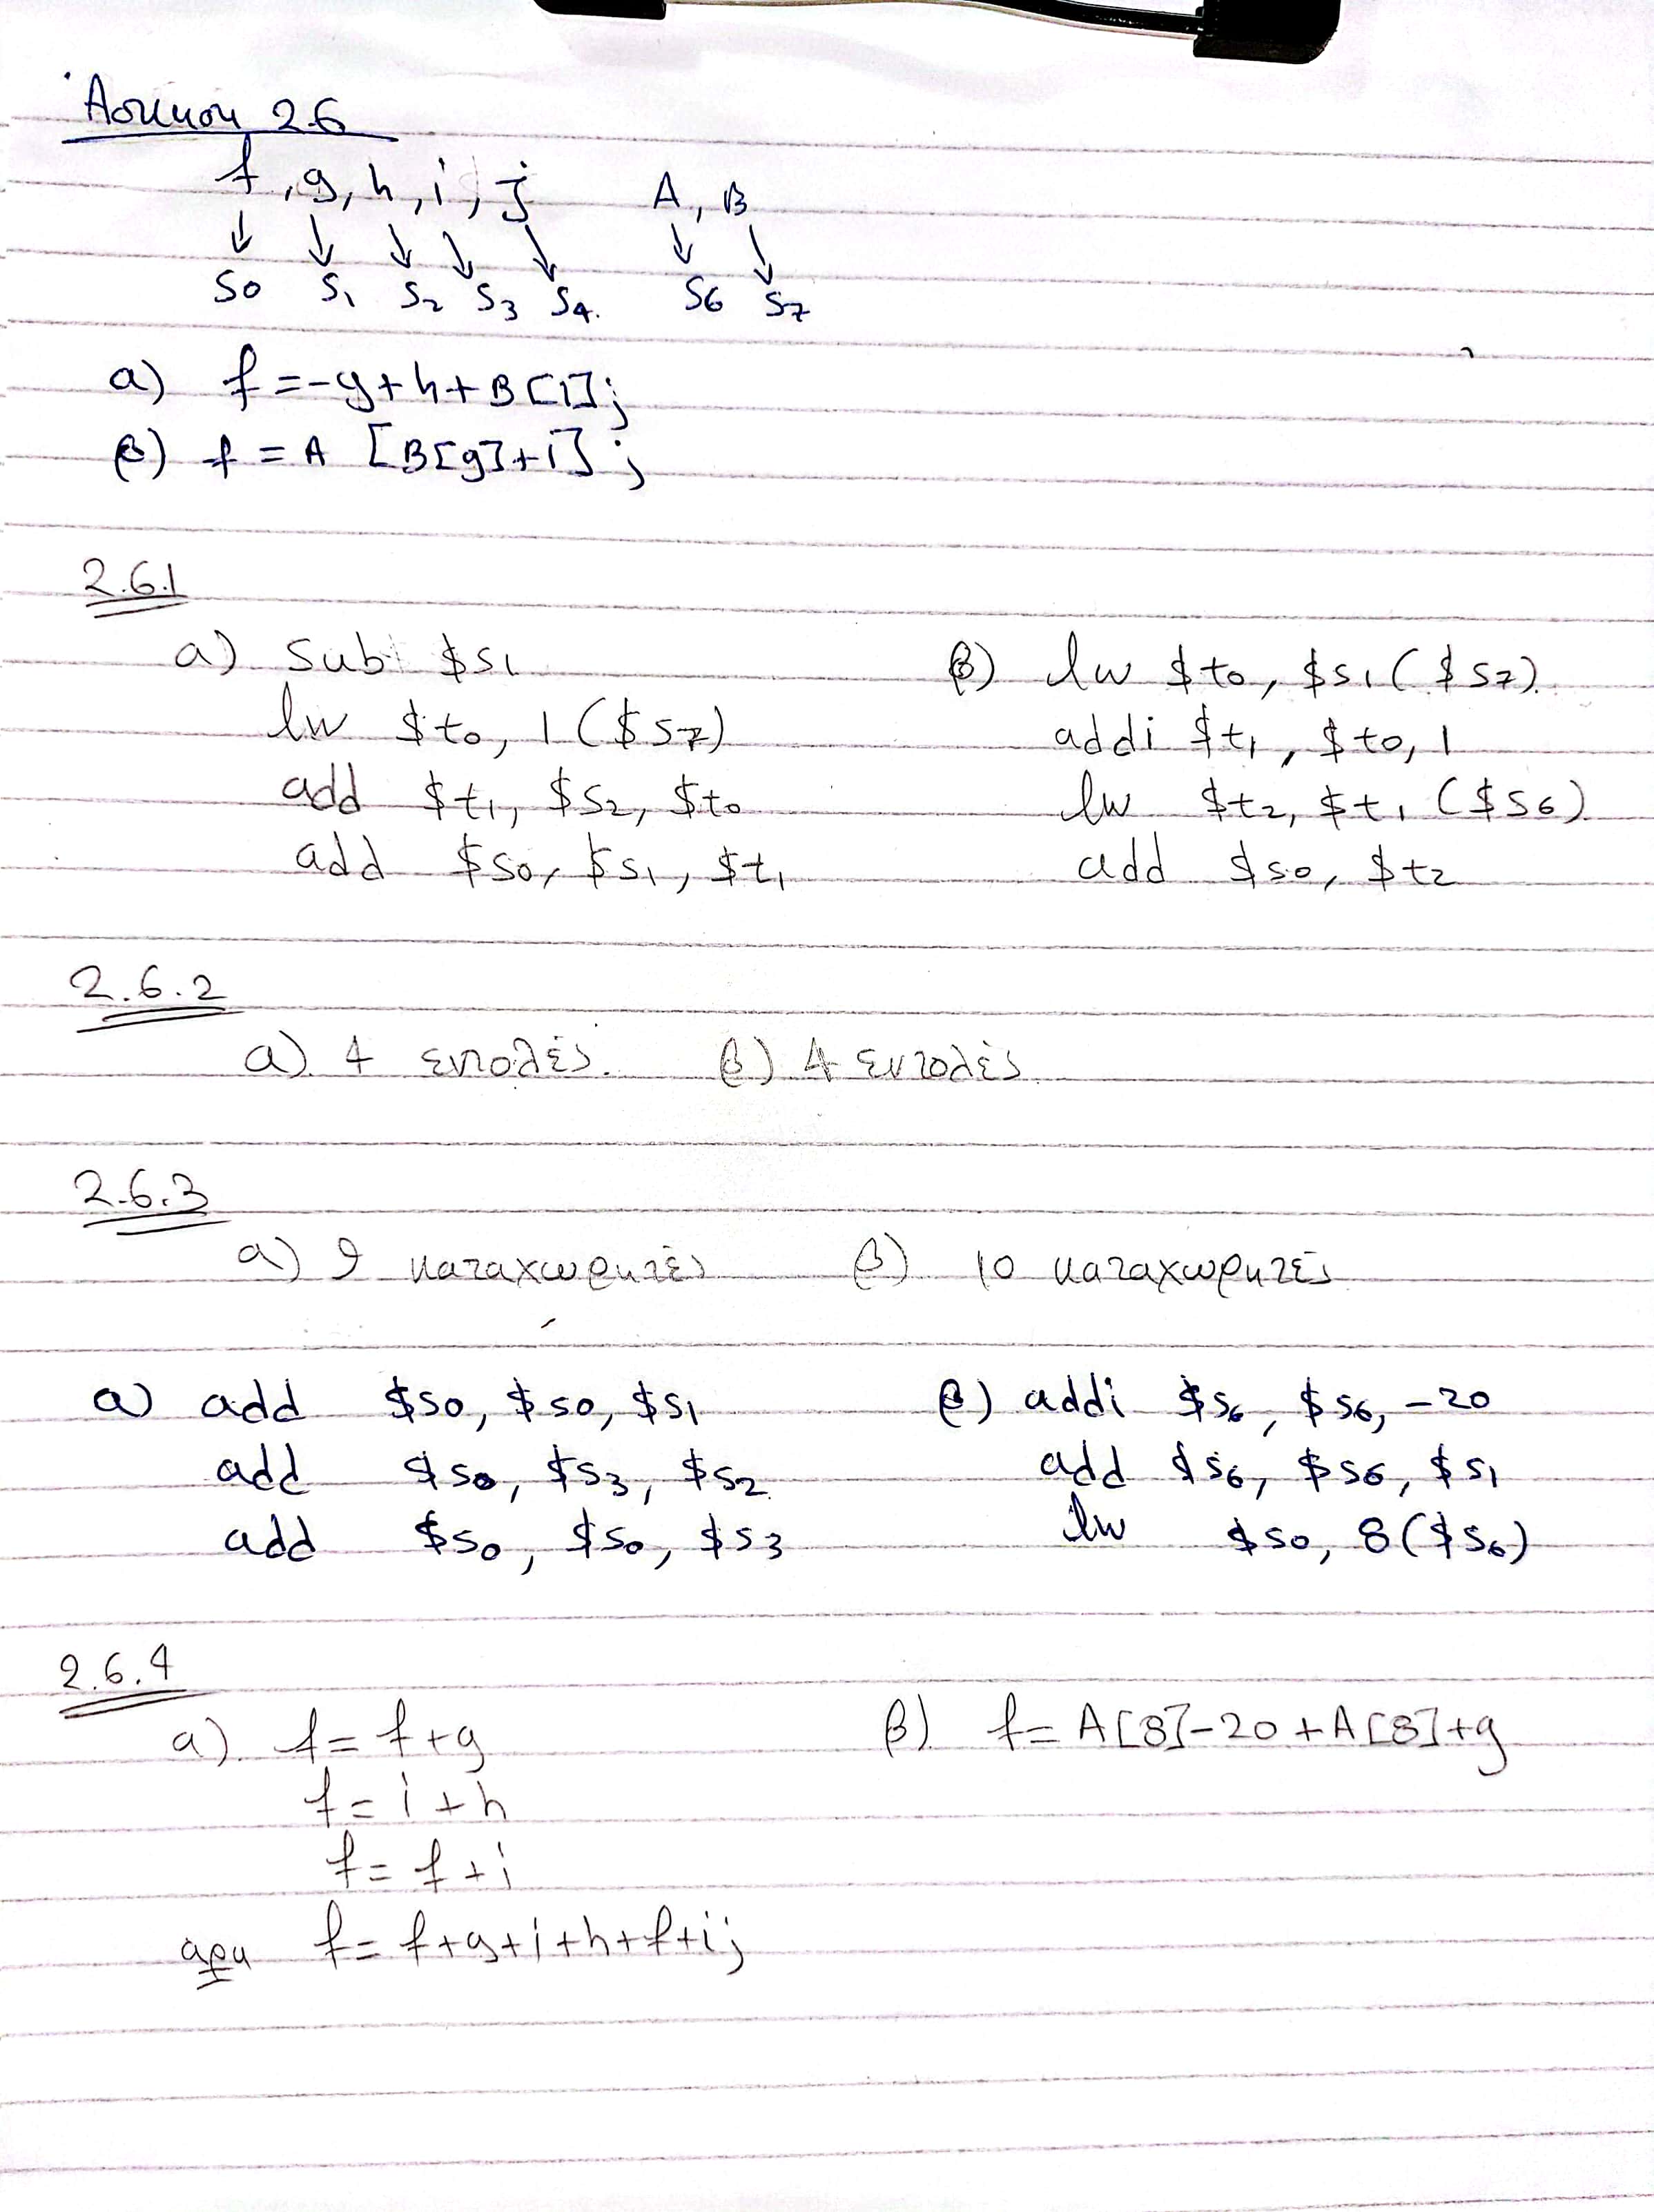 Άσκηση 2.6
f, g, h, i, j A, B
↓ ↓ ↓ ↓ ↓ ↓ ↓
S0 S1 S2 S3 S4. S6 S7
α) f = -g + h + B[1];
β) f = A [B[g]+1] ;
2.6.1
α) sub $s1
lw $t0, 1($s7)
add $t1, $s2, $t0
add $s0, $s1, $t1
β) lw $t0, $s1($s7)
addi $t1, $t0, 1
lw $t2, $t1($s6)
add $s0, $t2
2.6.2
α) 4 εντολές. β) 4 εντολές
2.6.3
α) 9 καταχωρητές β) 10 καταχωρητές
α) add $s0, $s0, $s1
add $s0, $s3, $s2
add $s0, $s0, $s3
β) addi $s6, $s6, -20
add $s6, $s6, $s1
lw $s0, 8($s6)
2.6.4
α) f = f+g
f = i+h
f = f+i
άρα f = f+g+i+h+f+i;
β) f = A[8]-20+A[8]+g